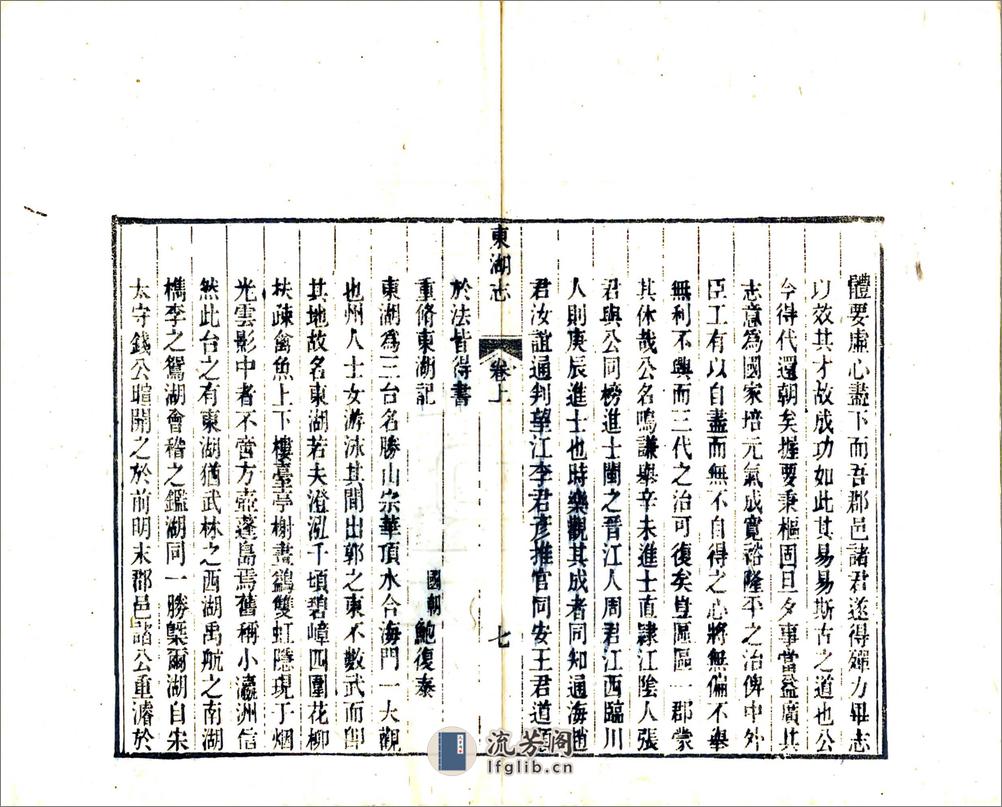 體要虛心盡下而吾郡邑諸君遂得殫力畢志
以效其才故成功如此其易易斯古之道也公
今得代還朝矣握要秉樞固旦夕事當益廣其
志意為國家培元氣成寬裕隆平之治俾中外
臣工有以自盡而無不自得之心將無偏不舉
無利不興而三代之治可復矣豈區區一郡蒙
其休哉公名鳴謙舉辛未進士直隸江陰人張
君與公同榜進士閩之晉江人周君江西臨川
人則庚辰進士也時樂觀其成者同知通海
君汝誼通判望江李君彥推官同安王君道
於法皆得書
東湖志
卷上
七
重脩東湖記
國朝鮑復泰
東湖為三台名勝山宗華頂水合海門一大觀
也州人士女游泳其間出郭之東不數武而即
其地故名東湖若夫澄泓千頃碧嶂四圍花柳
扶疎禽魚上下樓臺亭榭畫鷁雙虹隱現于烟
光雲影中者不啻方壺蓬島焉舊稱小瀛洲信
然此台之有東湖猶武林之西湖禹航之南湖
檇李之鴛湖會稽之鑑湖同一勝槩爾湖自宋
太守錢公暄開之於前明末郡邑諸公重濬於
流芳閣
lfglib.cn